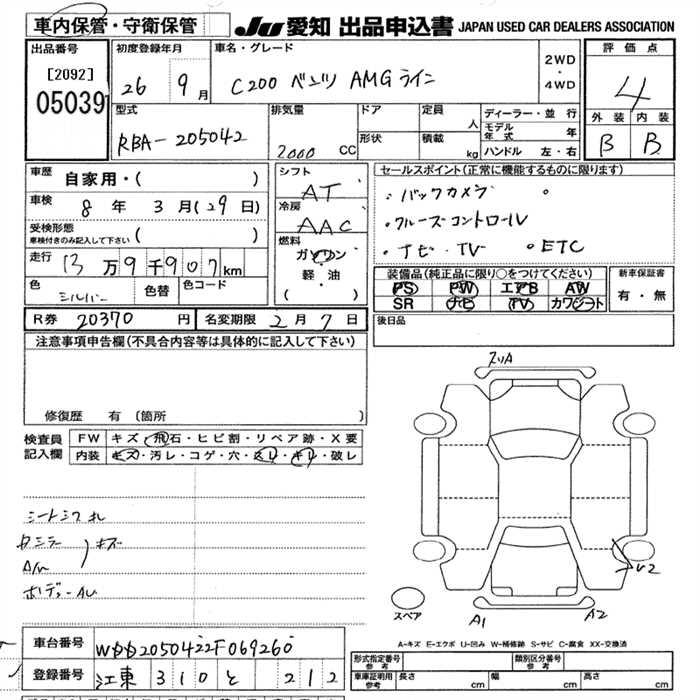 車内保管・守衛保管
JU 愛知 出品申込書 JAPAN USED CAR DEALERS ASSOCIATION
出品番号 初度登録年月 車名・グレード 2WD ・ 4WD 評価点
[2092]
05039 26 9月 C200 ベンツ AMG ライン 4
外装 内装
B B
型式 排気量 ドア 定員 人 ディーラー・並行
RBA-205042 2000 CC 形状 積載 kg モデル年式 年
ハンドル 左・右
車歴 自家用・( )
シフト AT
セールスポイント(正常に機能するものに限ります)
車検 8年 3月(29日)
冷房 AAC
・バックカメラ
・クルーズコントロール
・ナビ・TV ・ETC
受検形態
車検付きのみ記入して下さい ( )
燃料 ガソリン
軽・油
( )
走行 13万9千907km
色 シルバー 色替 色コード
装備品(純正品に限り○をつけてください) 新車保証書
PS PW エアB AW 有・無
SR ナビ TV カワシート
R券 20370円 名変期限 2月7日
後日品
注意事項申告欄(不具合内容等は具体的に記入して下さい)
修復歴 有 (箇所 )
検査員 FW キズ・飛石・ヒビ割・リペア跡・X要
記入欄 内装 キズ・汚レ・コゲ・穴・スレ・キレ・破レ
シートシワ
キズ
A1 A2
スペア
A-キズ E-エクボ U-凹み W-補修跡 S-サビ C-腐食 XX-交換済
車台番号 WDD2050422F069260
登録番号 江東 310 と 212
形式指定番号 参考 類別区分番号 参考
車庫証明用 参考 長さ cm 幅 cm 高さ cm